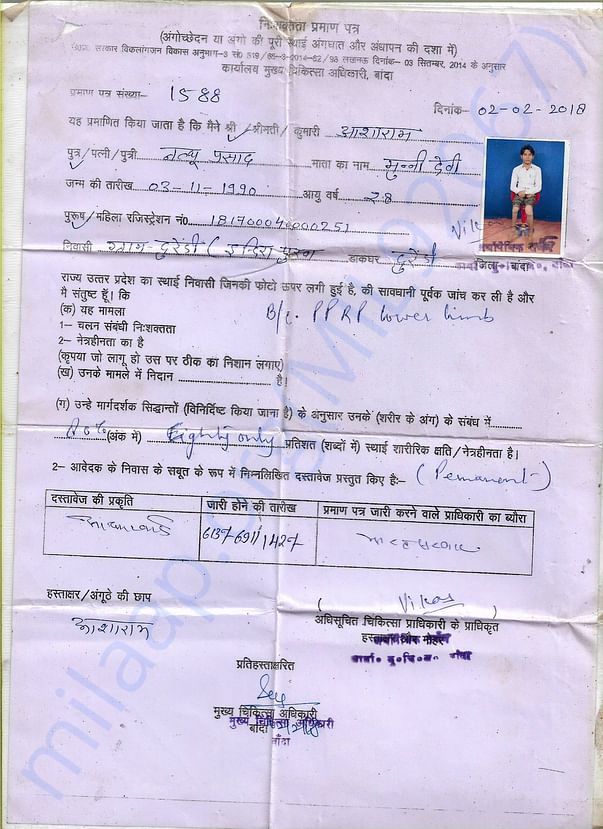 निःशक्तता प्रमाण पत्र
(अंगोच्छेदन या अंगो की पूरी स्थाई अंगघात और अंधापन की दशा में)
सरकार विकलांगजन विकास अनुभाग-3 सं0 519 / 65-3-2014-82 / 98 लखनऊ दिनांक- 03 सितम्बर, 2014 के अनुसार
कार्यालय मुख्य चिकित्सा अधिकारी, बांदा
प्रमाण पत्र संख्या- 1588
दिनांक- 02-02-2018
यह प्रमाणित किया जाता है कि मैने श्री / श्रीमती / कुमारी आशाराम
पुत्र / पत्नी / पुत्री नत्थू प्रसाद माता का नाम मुन्नी देवी
जन्म की तारीख 03-11-1990 आयु वर्ष 28
पुरूष / महिला रजिस्ट्रेशन नं0
निवासी ग्राम- दुरेंडी ( डाकघर दुरेंडी जिला- बांदा
राज्य उत्तर प्रदेश का स्थाई निवासी जिनकी फोटो ऊपर लगी हुई है, की सावधानी पूर्वक जांच कर ली है और
मै संतुष्ट हूँ। कि
(क) यह मामला B/L PPRP lower limb
1- चलन संबंधी निःशक्तता
2- नेत्रहीनता का है
(कृपया जो लागू हो उस पर ठीक का निशान लगाए)
(ख) उनके मामले में निदान .......................... है।
(ग) उन्हे मार्गदर्शक सिद्धान्तों (विनिर्दिष्ट किया जाना है) के अनुसार उनके (शरीर के अंग) के संबंध में..........
80% (अंक में) Eighty only प्रतिशत (शब्दों में) स्थाई शारीरिक क्षति / नेत्रहीनता है।
2- आवेदक के निवास के सबूत के रूप में निम्नलिखित दस्तावेज प्रस्तुत किए है:- (Permanent)
दस्तावेज की प्रकृति जारी होने की तारीख प्रमाण पत्र जारी करने वाले प्राधिकारी का ब्यौरा
आधारकार्ड
हस्ताक्षर / अंगूठे की छाप
आशाराम
Vikas
अधिसूचित चिकित्सा प्राधिकारी के प्राधिकृत
हस्ताक्षर और मोहर
प्रतिहस्ताक्षरित
मुख्य चिकित्सा अधिकारी
बांदा
मुख्य चिकित्सा अधिकारी
बाँदा